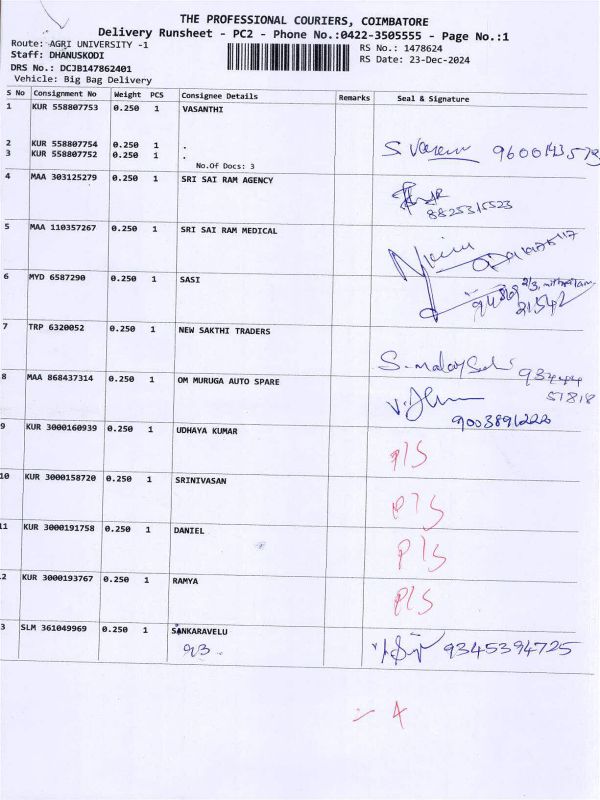 THE PROFESSIONAL COURIERS, COIMBATORE
Delivery Runsheet - PC2 - Phone No.:0422-3505555 - Page No.:1
Route: AGRI UNIVERSITY -1
RS No.: 1478624
Staff: DHANUSKODI
RS Date: 23-Dec-2024
DRS No.: DCJB147862401
Vehicle: Big Bag Delivery
S No Consignment No Weight PCS Consignee Details Remarks Seal & Signature
1 KUR 558807753 0.250 1 VASANTHI
2 KUR 558807754 0.250 1 .
3 KUR 558807752 0.250 1 .
No.Of Docs: 3
4 MAA 303125279 0.250 1 SRI SAI RAM AGENCY
8825315523
5 MAA 110357267 0.250 1 SRI SAI RAM MEDICAL
6 MYD 6587290 0.250 1 SASI
7 TRP 6320052 0.250 1 NEW SAKTHI TRADERS
93444
51818
8 MAA 868437314 0.250 1 OM MURUGA AUTO SPARE
9003891222
9 KUR 3000160939 0.250 1 UDHAYA KUMAR P/S
10 KUR 3000158720 0.250 1 SRINIVASAN P/S
11 KUR 3000191758 0.250 1 DANIEL P/S
2 KUR 3000193767 0.250 1 RAMYA P/S
3 SLM 361049969 0.250 1 SANKARAVELU 9345394725
93.
4